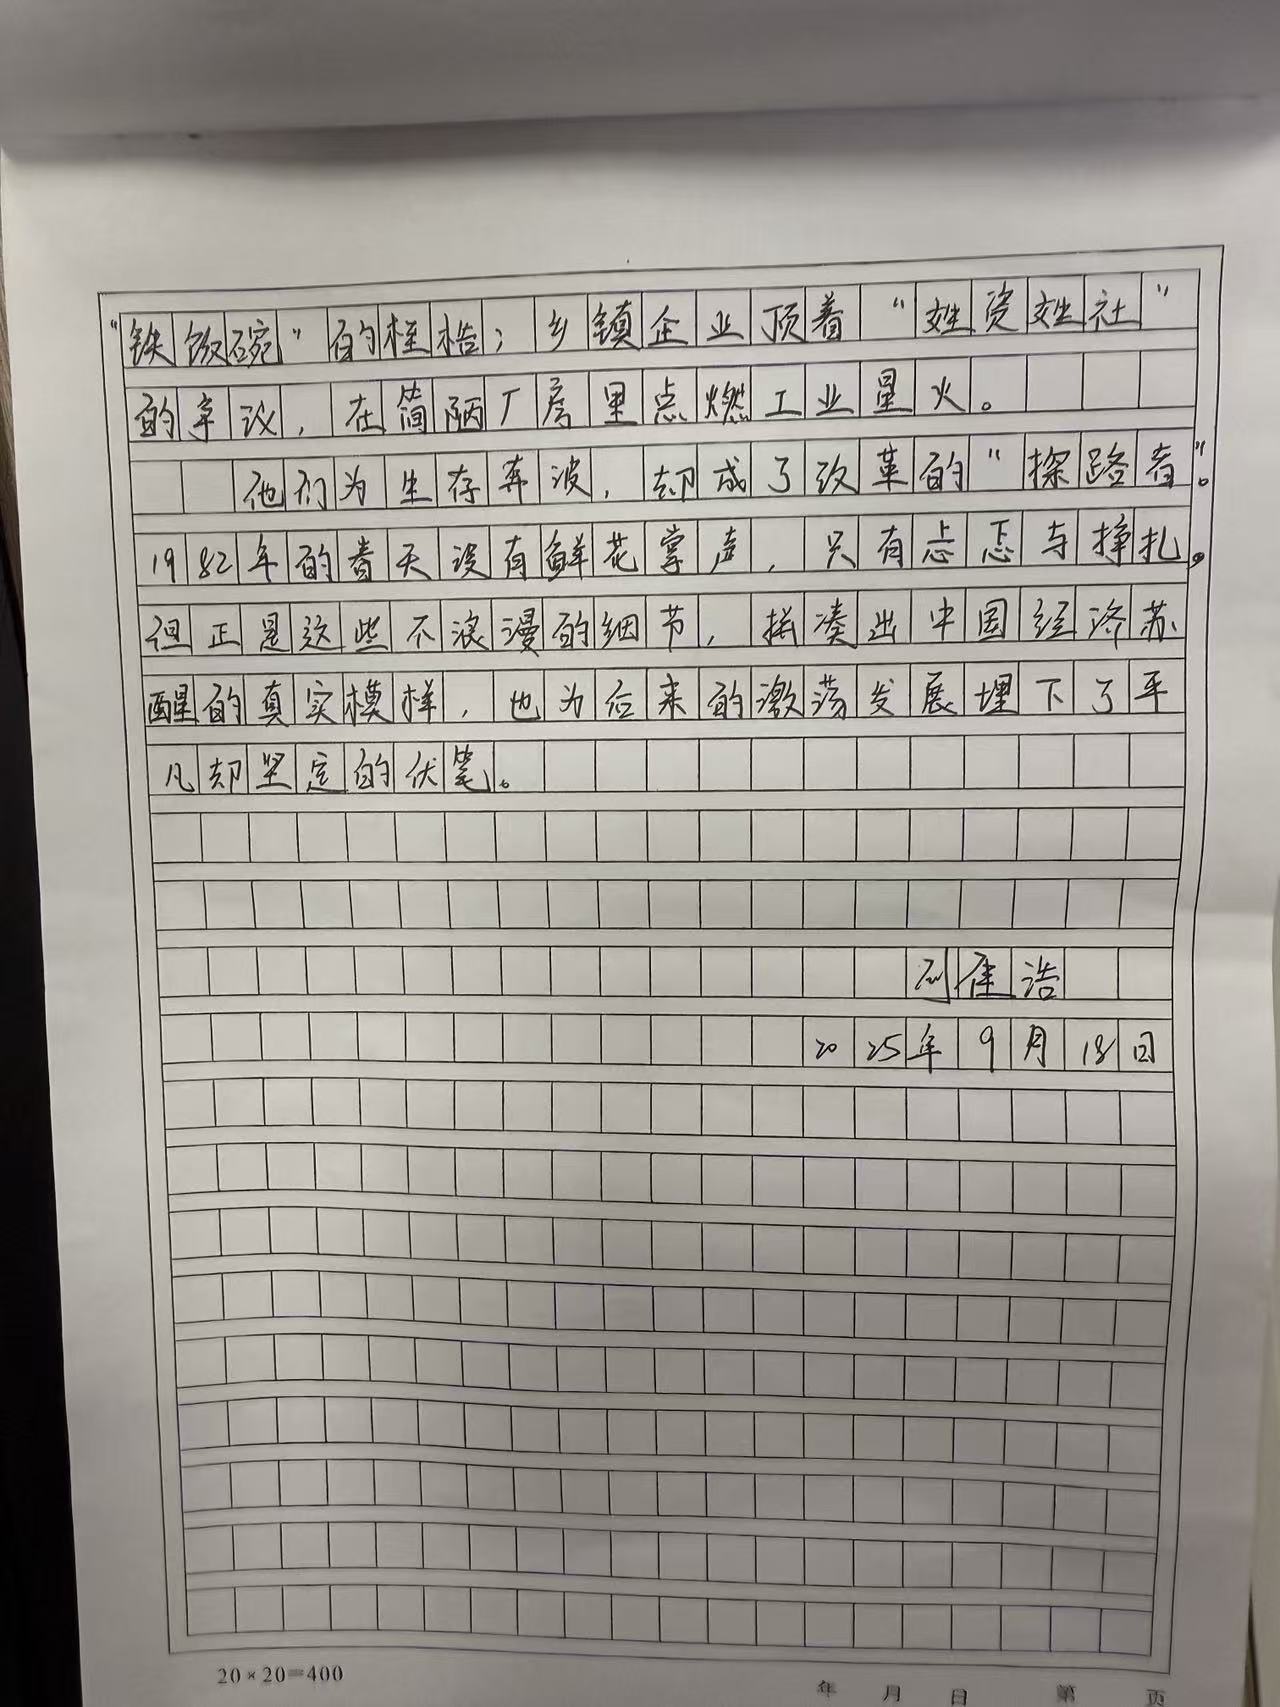 “铁饭碗”的桎梏；乡镇企业顶着“姓资姓社”
的争议，在简陋厂房里点燃工业星火。
他们为生存奔波，却成了改革的“探路者”。
1982年的春天没有鲜花掌声，只有忐忑与挣扎。
但正是这些不浪漫的细节，拼凑出中国经济苏
醒的真实模样，也为后来的激荡发展埋下了平
凡却坚定的伏笔。
佳浩
2025年9月18日
20×20=400
年 月 日 第 页